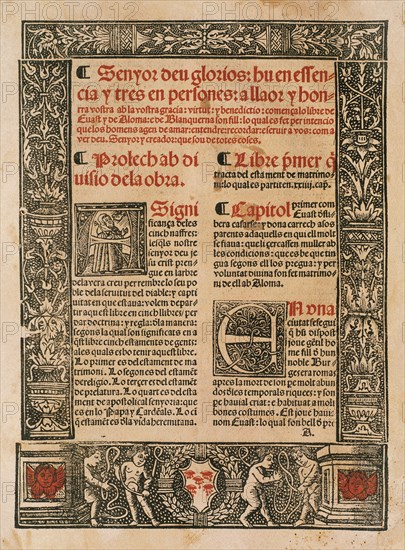 ¶ Senyor deu glorios: hu en essen-
cia y tres en persones: a llaor y hon-
rra vostra ab la vostra gracia: virtut: y benedictio: comença lo libre de
Euast y de Aloma: e de Blanquerna son fill: lo qual es fet per intencio
que los homens agen de amar: entendre: recordar: e seruir a vos: com a
ver deu. Senyor y creador: que sou de totes coses.
¶ Prolech ab di
uisio dela obra.
Signi
ficança de les
cinch nafres:
les quals nostre
senyor deu je
su crist pren-
gue en larbre
dela vera creu per rembre lo seu po
ble dela seruitut del diable: y capti
uitat en que estaua: volem depar-
tir aquest libre en cinch llibres: per
dar doctrina: y regla: d̃la manera:
segons la qual son significats en a
q̃st libre cinch estaments de gent:
als quals es bo tenir aquest libre.
Lo primer es del estament de ma
trimoni. Lo segon es del estamẽt
de religio. Lo terçer es del estamẽt
de prelatura. Lo quart es del esta-
ment de apostolical senyoria: que
es en lo Papa y Cardẽals. Lo ci
q̃t estamẽt es d̃la vida heremitana.
¶ Libre p̃mer q̃
tracta del estament de matrimo-
ni: lo qual es partit en .xxiiii. cap.
¶ Capitol primer
com Euast d̃sli-
bera casarse: y dona carrech a sos
parents adaquells en qui ell molt
se fiaua: que li çercassen muller ab
les condicions: que es be que tin
gua segons ell los pregua: y per
voluntat diuina fon fet matrimo-
ni de ell ab Aloma.
EN vna
ciutat se segui
q̃ hũ dispost
joue gẽtil ho
me fill d̃ hun
noble Bur-
ges era roma
s apres la mort de son pe molt abun
dos d̃les temporals riquees: y son
hi pau criat: e habituat a molt
bones costumes. Est joue hauia
nom Euast: lo qual fon hell õ p̃r
A.